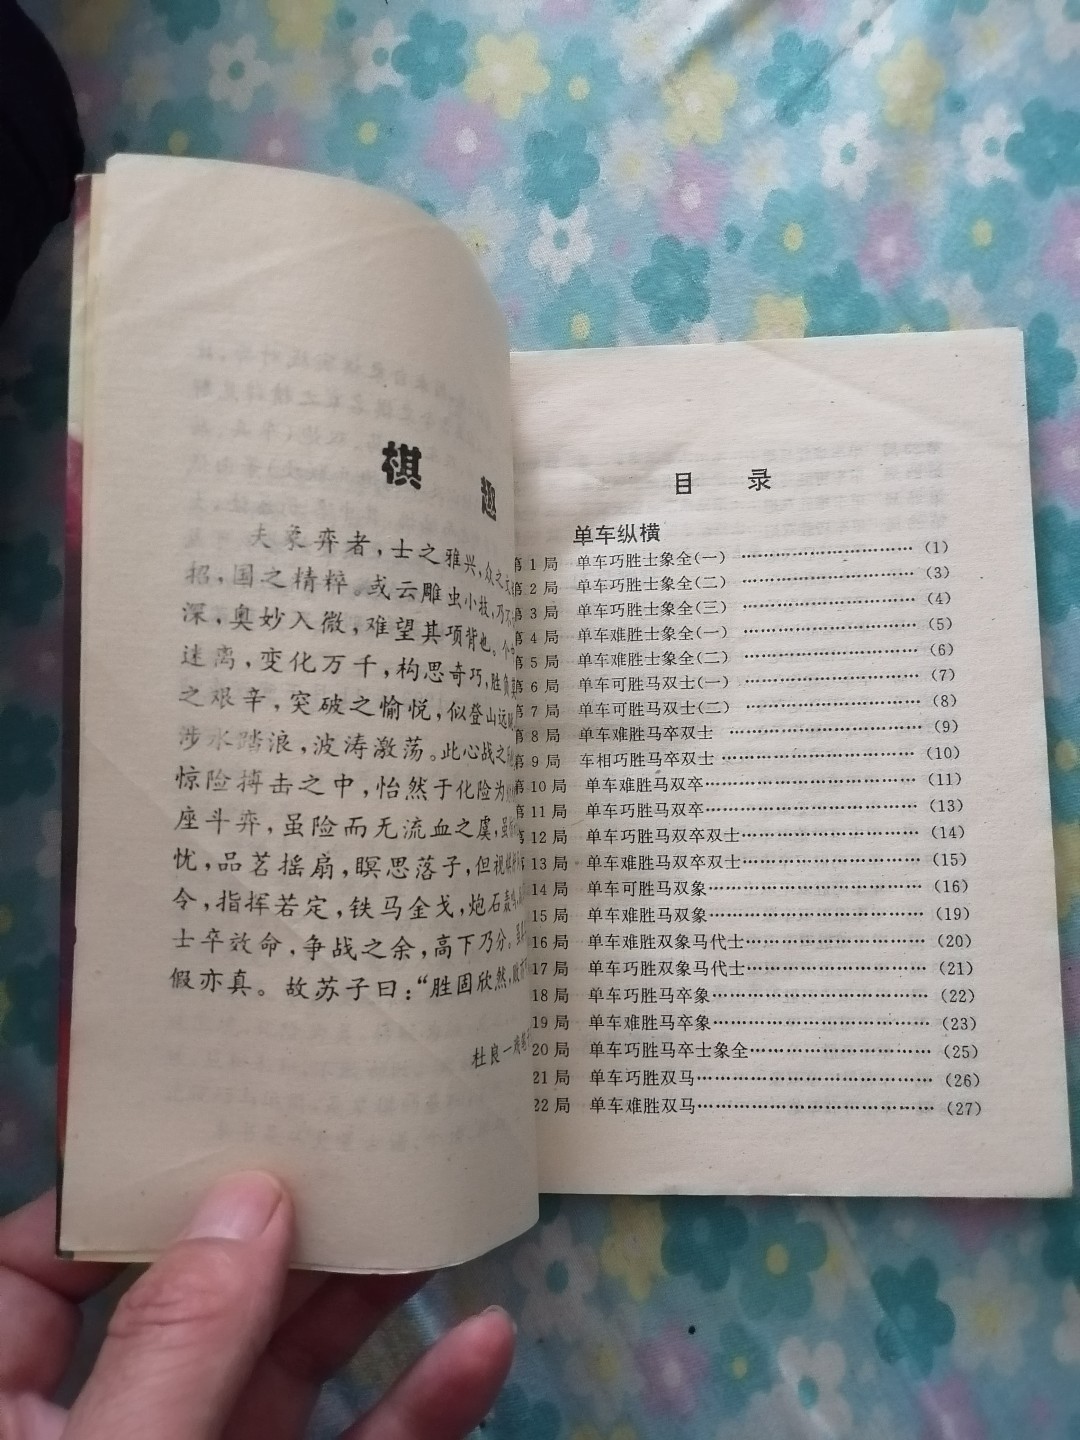 棋 趣
夫象弈者，士之雅兴，众之
招，国之精粹。或云雕虫小技，乃不
深，奥妙入微，难望其项背也。个中
迷离，变化万千，构思奇巧，胜负莫
之艰辛，突破之愉悦，似登山远眺
涉水踏浪，波涛激荡。此心战之
惊险搏击之中，怡然于化险为
座斗弈，虽险而无流血之虞，虽
忧，品茗摇扇，瞑思落子，但视棋枰
令，指挥若定，铁马金戈，炮石轰鸣
士卒效命，争战之余，高下乃分。
假亦真。故苏子曰：“胜固欣然，败亦
杜良一戏
目 录
单车纵横
第1局 单车巧胜士象全(一) …………………………… (1)
第2局 单车巧胜士象全(二) …………………………… (3)
第3局 单车巧胜士象全(三) …………………………… (4)
第4局 单车难胜士象全(一) …………………………… (5)
第5局 单车难胜士象全(二) …………………………… (6)
第6局 单车可胜马双士(一) …………………………… (7)
第7局 单车可胜马双士(二) …………………………… (8)
第8局 单车难胜马卒双士 …………………………… (9)
第9局 车相巧胜马卒双士 …………………………… (10)
第10局 单车难胜马双卒…………………………… (11)
第11局 单车巧胜马双卒…………………………… (13)
第12局 单车巧胜马双卒双士…………………………… (14)
13局 单车难胜马双卒双士…………………………… (15)
14局 单车可胜马双象…………………………… (16)
15局 单车难胜马双象…………………………… (19)
16局 单车难胜双象马代士…………………………… (20)
17局 单车巧胜双象马代士…………………………… (21)
18局 单车巧胜马卒象…………………………… (22)
19局 单车难胜马卒象…………………………… (23)
20局 单车巧胜马卒士象全…………………………… (25)
21局 单车巧胜双马…………………………… (26)
22局 单车难胜双马…………………………… (27)